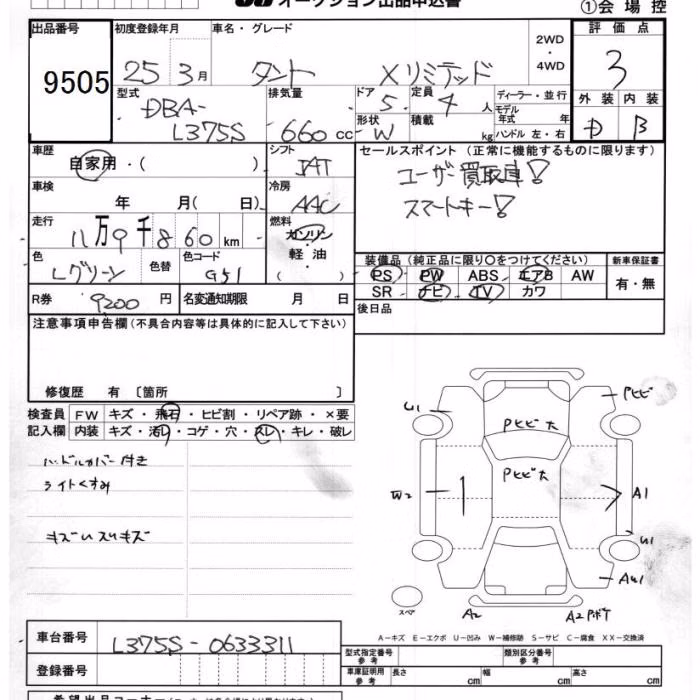 オークション出品申込書
①会場控
出品番号 初度登録年月 車名・グレード 評価点
9505 25 3月 タント Xリミテッド 2WD ・ 4WD 3
型式 排気量 ドア 定員 ディーラー・並行 外装 内装
DBA- L375S 660 cc 5 4人 モデル年式 年 D B
形状 W 積載 kg ハンドル 左・右
車歴 シフト セールスポイント (正常に機能するものに限ります)
自家用・( ) IAT ユーザー買取車!
車検 冷房 スマートキー!
年 月( 日) AAC
走行 燃料
11万9千860km ガソリン・軽油 ( )
色 色替 色コード 装備品(純正品に限り○をつけてください) 新車保証書
Lグリーン G51 PS PW ABS エアB AW 有・無
SR ナビ TV カワ
R券 9200円 名変通知期限 月 日 後日品
注意事項申告欄(不具合内容等は具体的に記入して下さい)
修復歴 有 〔箇所 〕
検査員 FW キズ・飛石・ヒビ割・リペア跡・×要
記入欄 内装 キズ・汚レ・コゲ・穴・スレ・キレ・破レ
ハンドルカバー付き
ライトくすみ
キズUスリキズ
U1
Pヒビ
Pヒビ大
Pヒビ大
W2
A1
U1
AU1
スペア
A2
A2Pボケ
A−キズ E−エクボ U−凹み W−補修跡 S−サビ C−腐食 XX−交換済
車台番号 L375S-0633311
型式指定番号 参考 類別区分番号 参考
登録番号
車庫証明用 参考 長さ cm 幅 cm 高さ cm
希望出品コーナー